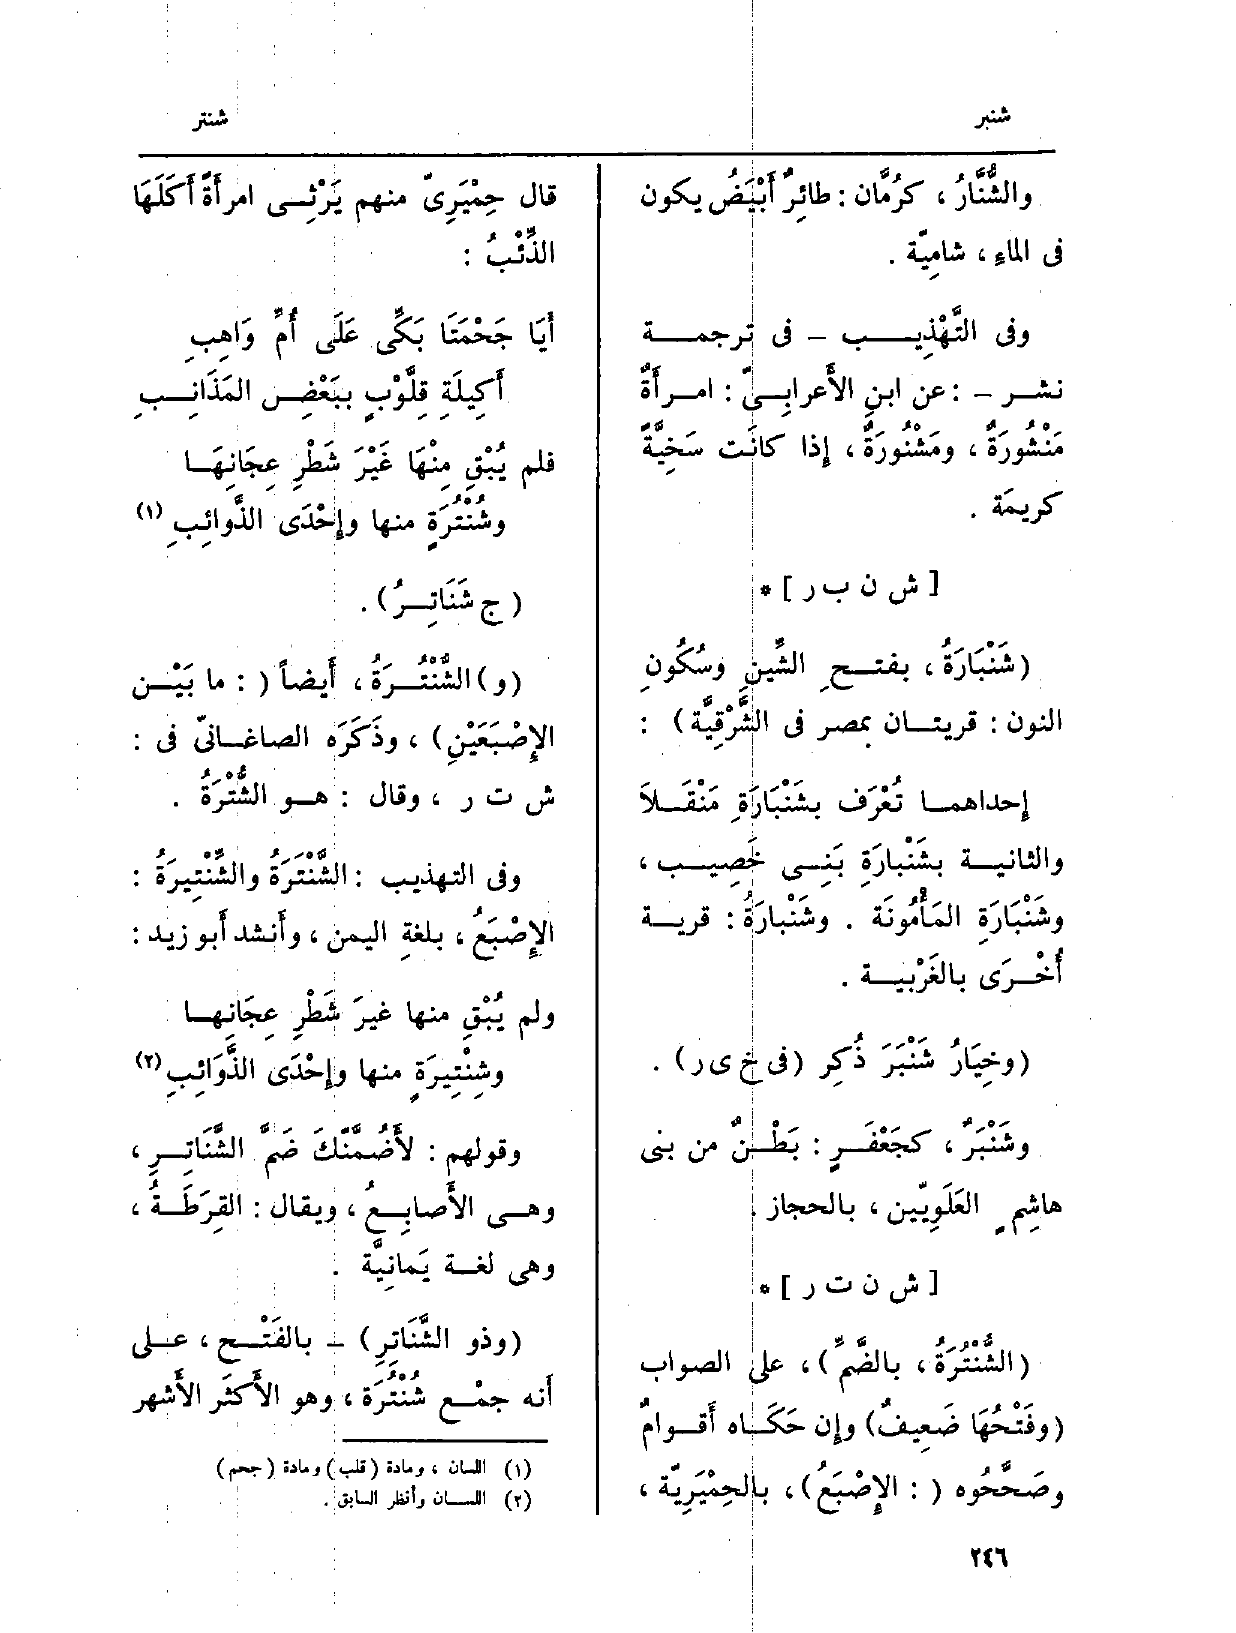 شنبر
شنتر
والشُّنَّارُ ، كرُمَّان : طائِرٌ أَبْيَضُ يكون
فى الماءِ ، شامِيَّة .
وفى التَّهْذِيب – فى ترجمة
نشر – : عن ابنِ الأَعرابِىّ : امرأَةٌ
مَنْشُورَةٌ ، ومَشْنُورَةٌ ، إِذا كانَت سَخِيَّةً
كريمَة .
[ ش ن ب ر ] *
(شَنْبَارَةُ ، بفتحِ الشِّينِ وسُكُونِ
النون : قريتان بمصر فى الشَّرْقِيَّة) :
إِحداهما تُعْرَف بشَنْبَارَةِ مَنْقَلاَ
والثانية بشَنْبارَةِ بَنِى خَصِيب ،
وشَنْبَارَةِ المَأْمُونَة . وشَنْبارَةُ : قرية
أُخْرَى بالغَرْبِية .
(وخِيَارُ شَنْبَرَ ذُكِر (فى خ ى ر) .
وشَنْبَرٌ ، كجَعْفَرٍ : بَطْنٌ من بنى
هاشِمٍ العَلَوِيّين ، بالحجاز .
[ ش ن ت ر ] *
(الشُّنْتُرَةُ ، بالضَّمِّ) ، على الصواب
(وفَتْحُهَا ضَعِيفٌ) وإِن حَكَاه أَقوامٌ
وصَحَّحُوه ( : الإِصْبَعُ) ، بالحِمْيَرِيَّة ،
قال حِمْيَرِىّ منهم يَرْثِى امرأَةً أَكَلَهَا
الذِّئْبُ :
أَيَا جَحْمَتَا بَكِّى عَلَى أُمِّ وَاهِبِ
أَكِيلَةِ قِلَّوْبٍ بِبَعْضِ المَذَانِبِ
فلم يُبْقِ مِنْهَا غَيْرَ شَطْرِ عِجَانِهَا
وشُنْتُرَةٍ منها وإِحْدَى الذَّوائِبِ (١)
(ج شَنَاتِرُ) .
(و) الشُّنْتُرَةُ ، أَيضاً ( : ما بَيْن
الإِصْبَعَيْنِ) ، وذَكَرَه الصاغانىّ فى :
ش ت ر ، وقال : هو الشُّتْرَةُ .
وفى التهذيب : الشَّنْتَرَةُ والشِّنْتِيرَةُ :
الإِصْبَعُ ، بلغةِ اليمن ، وأَنشد أَبو زيد :
ولم يُبْقِ منها غيرَ شَطْرِ عِجَانِهَا
وشِنْتِيرَةٍ منها وإِحْدَى الذَّوَائِبِ (٢)
وقولهم : لأَضُمَّنَّكَ ضَمَّ الشَّنَاتِرِ ،
وهى الأَصابِعُ ، ويقال : القِرَطَةُ ،
وهى لغة يَمانِيَّة .
(وذو الشَّنَاتِرِ) – بالفَتْح ، على
أَنه جمْع شُنْتُرَة ، وهو الأَكثَر الأَشهر
(١) اللسان ، ومادة (قلب) ومادة (جحم)
(٢) اللسان وأنظر السابق .
٢٤٦